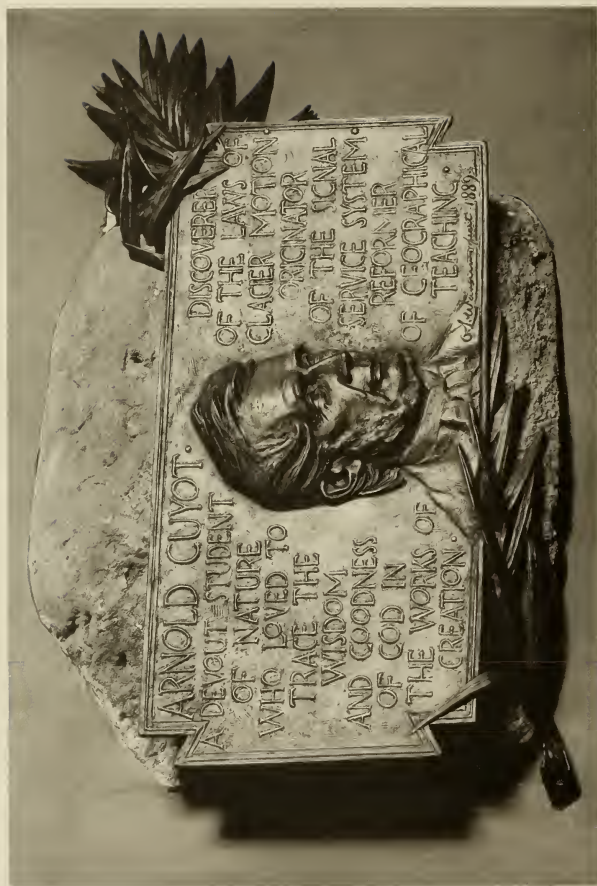 ARNOLD GUYOT.
A DEVOUT STUDENT
OF NATURE
WHO LOVED TO
TRACE THE
WISDOM
AND GOODNESS
OF GOD IN
THE WORKS OF
CREATION.
DISCOVERER
OF THE LAWS OF
GLACIER MOTION.
ORIGINATOR
OF THE SIGNAL
SERVICE SYSTEM.
REFORMER
OF GEOGRAPHICAL
TEACHING.
Warner August 1889.